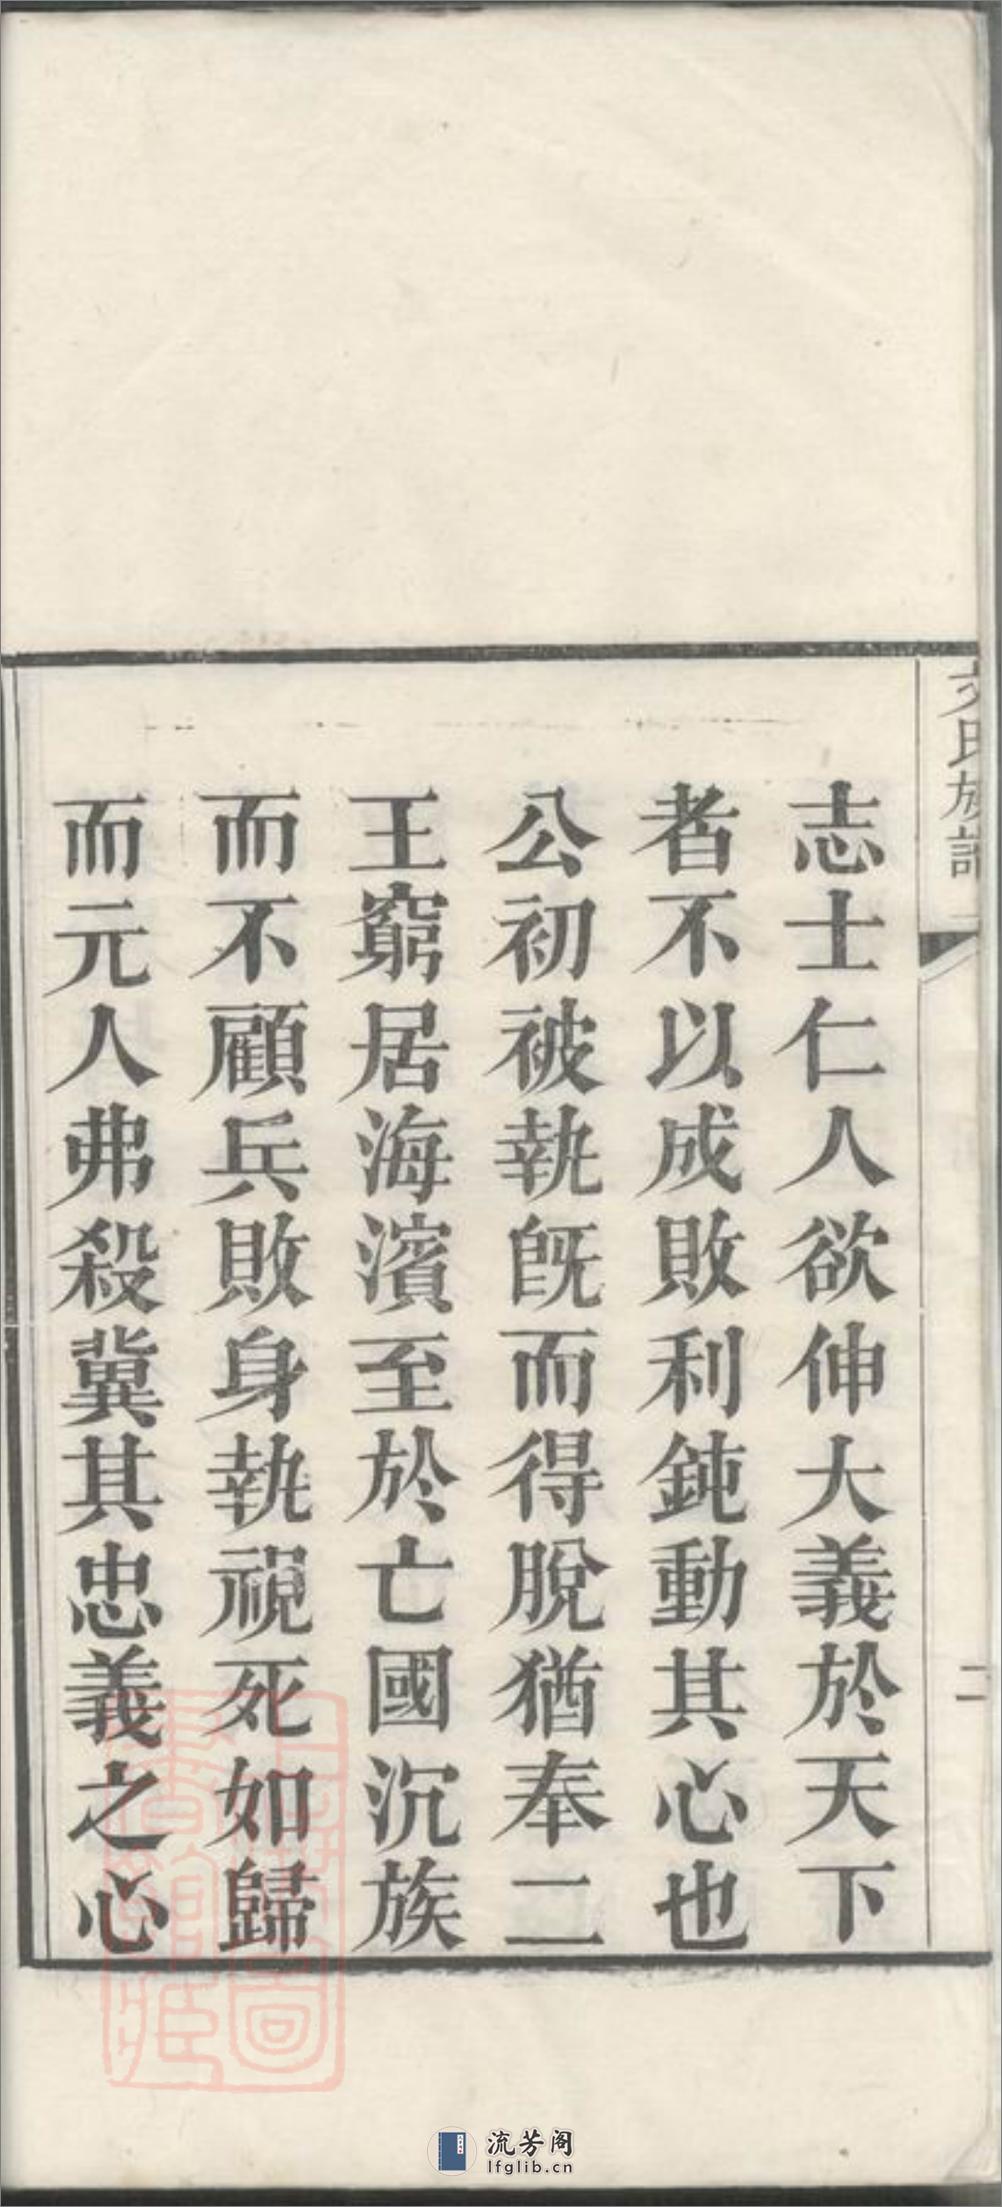 文氏族譜
二
志士仁人欲伸大義於天下
者不以成敗利鈍動其心也
公初被執旣而得脫猶奉二
王窮居海濱至於亡國沉族
而不顧兵敗身執視死如歸
而元人弗殺冀其忠義之心
上海圖書館藏
流芳阁
lfglib.cn